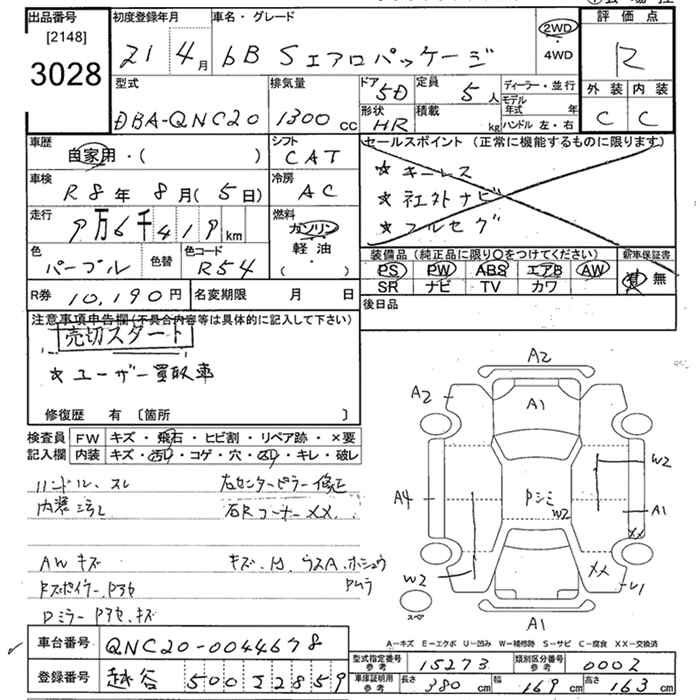 出品番号 初度登録年月 車名・グレード 評価点
[2148]
3028 21 4月 bB Sエアロパッケージ 2WD 4WD R
型式 排気量 ドア 5D 定員 5人 ディーラー・並行 外装 内装
DBA-QNC20 1300cc 形状 HR 積載 kg モデル年式 年 ハンドル 左・右 C C
車歴 自家用・( ) シフト CAT セールスポイント(正常に機能するものに限ります)
☆キーレス
車検 R8年8月(5日) 冷房 AC ☆社外ナビ
☆フルセグ
走行 9万6千419km 燃料 ガソリン 軽油 ( )
色 パープル 色替 色コード R54 装備品(純正品に限り○をつけてください) 新車保証書
PS PW ABS エアB AW 有 無
SR ナビ TV カワ
R券 10,190円 名変期限 月 日 後日品
注意事項申告欄(不具合内容等は具体的に記入して下さい)
売切スタート
☆ユーザー買取車
修復歴 有 〔箇所 〕
検査員 FW キズ・飛石・ヒビ割・リペア跡・×要
記入欄 内装 キズ・汚れ・コゲ・穴・凹み・キレ・破レ
ハンドル、スレ 右センターピラー修正
内装汚れ 右Rコーナー××.
AWキズ キズ.凹.ウスA.ホシュウ
Pムラ
RスポイラーPハセ
DミラーPハセ、キズ
A2
A2 A1
W2
A4 Pシミ W2 A1
××
W2 ×× U1
スペア
A1
A-キズ E-エクボ U-凹み W-補修跡 S-サビ C-腐食 XX-交換済
車台番号 QNC20-0044678
登録番号 越谷 500 す 2859
型式指定番号 参考 15273 類別区分番号 参考 0002
車庫証明用 参考 長さ 380cm 幅 169cm 高さ 163cm